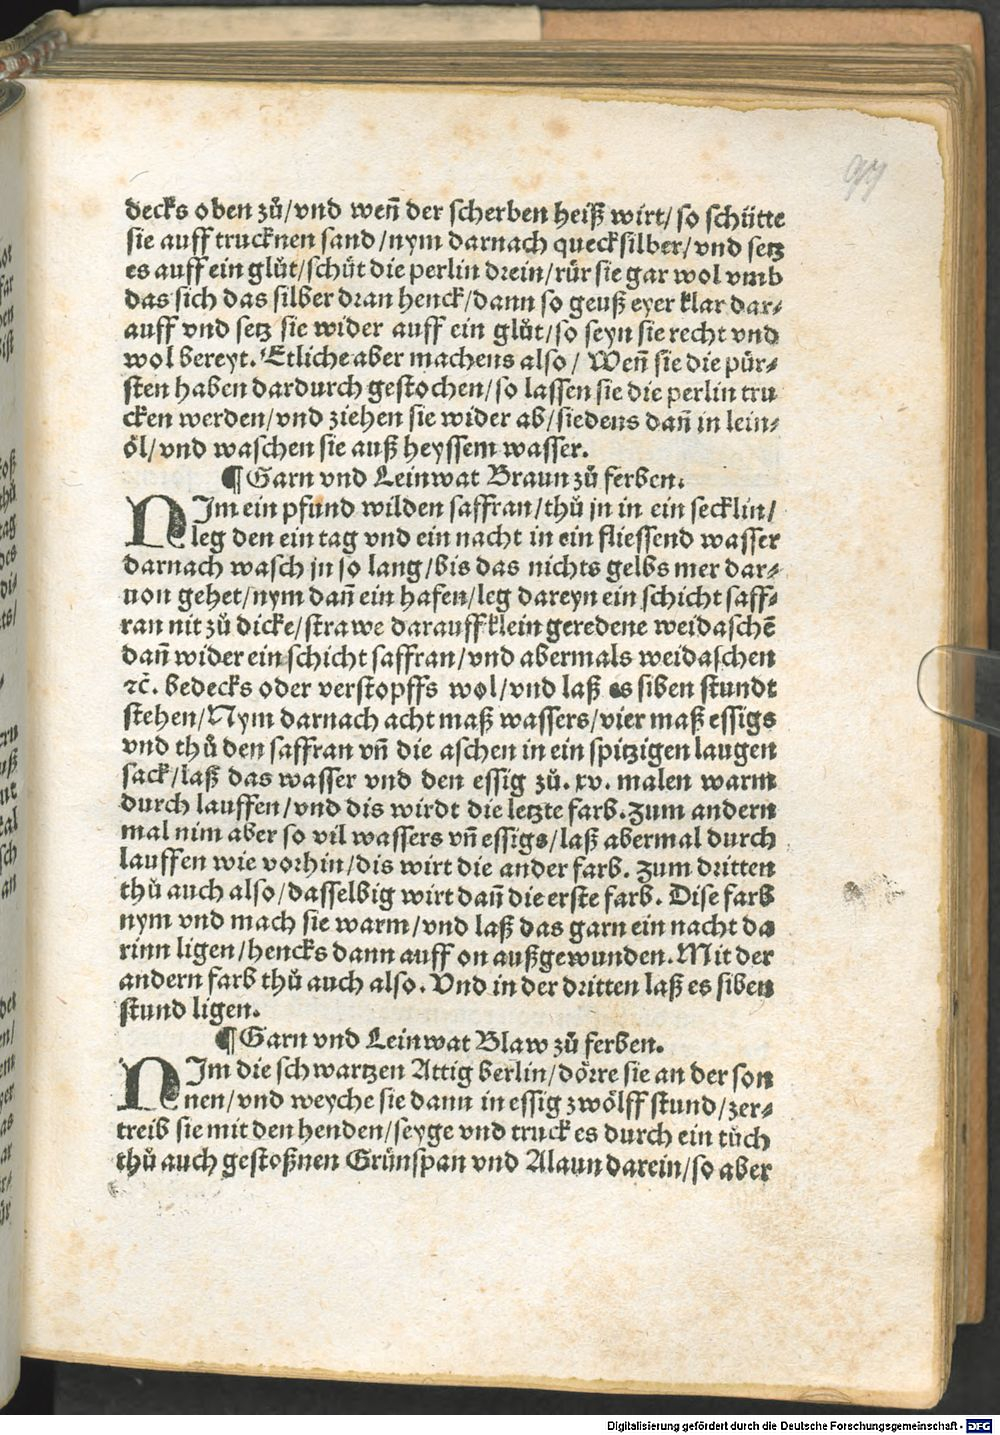 97
decks oben zů/vnd weñ der scherben heiß wirt/so schütte
sie auff trucknen sand/nym darnach quecksilber/vnd setz
es auff ein glůt/schüt die perlin drein/rür sie gar wol vmb
das sich das silber dran henck/dann so geuß eyer klar dar⸗
auff vnd setz sie wider auff ein glůt/so seyn sie recht vnd
wol bereyt. Etliche aber machens also/ Weñ sie die pür⸗
sten haben dardurch gestochen/so lassen sie die perlin tru
cken werden/vnd ziehen sie wider ab/siedens dañ in lein⸗
öl/vnd waschen sie auß heyssem wasser.
¶ Garn vnd Leinwat Braun zů ferben.
NIm ein pfund wilden saffran/thů jn in ein secklin/
leg den ein tag vnd ein nacht in ein fliessend wasser
darnach wasch jn so lang/bis das nichts gelbs mer dar⸗
uon gehet/nym dañ ein hafen/leg dareyn ein schicht saff⸗
ran nit zů dicke/strawe darauff klein geredene weidaschē
dañ wider ein schicht saffran/vnd abermals weidaschen
⁊c̄. bedecks oder verstopffs wol/vnd laß es siben stundt
stehen/Nym darnach acht maß wassers/vier maß essigs
vnd thů den saffran vñ die aschen in ein spitzigen laugen
sack/laß das wasser vnd den essig zů. xv. malen warm
durch lauffen/vnd dis wirdt die letzte farb. Zum andern
mal nim aber so vil wassers vñ essigs/laß abermal durch
lauffen wie vorhin/dis wirt die ander farb. Zum dritten
thů auch also/dasselbig wirt dañ die erste farb. Dise farb
nym vnd mach sie warm/vnd laß das garn ein nacht da
rinn ligen/hencks dann auff on außgewunden. Mit der
andern farb thů auch also. Vnd in der dritten laß es siben
stund ligen.
¶ Garn vnd Leinwat Blaw zů ferben.
NIm die schwartzen Attig berlin/dörre sie an der son
nen/vnd weyche sie dann in essig zwölff stund/zer⸗
treib sie mit den henden/seyge vnd truck es durch ein tůch
thů auch gestoßnen Grünspan vnd Alaun darein/so aber
Digitalisierung gefördert durch die Deutsche Forschungsgemeinschaft - DFG